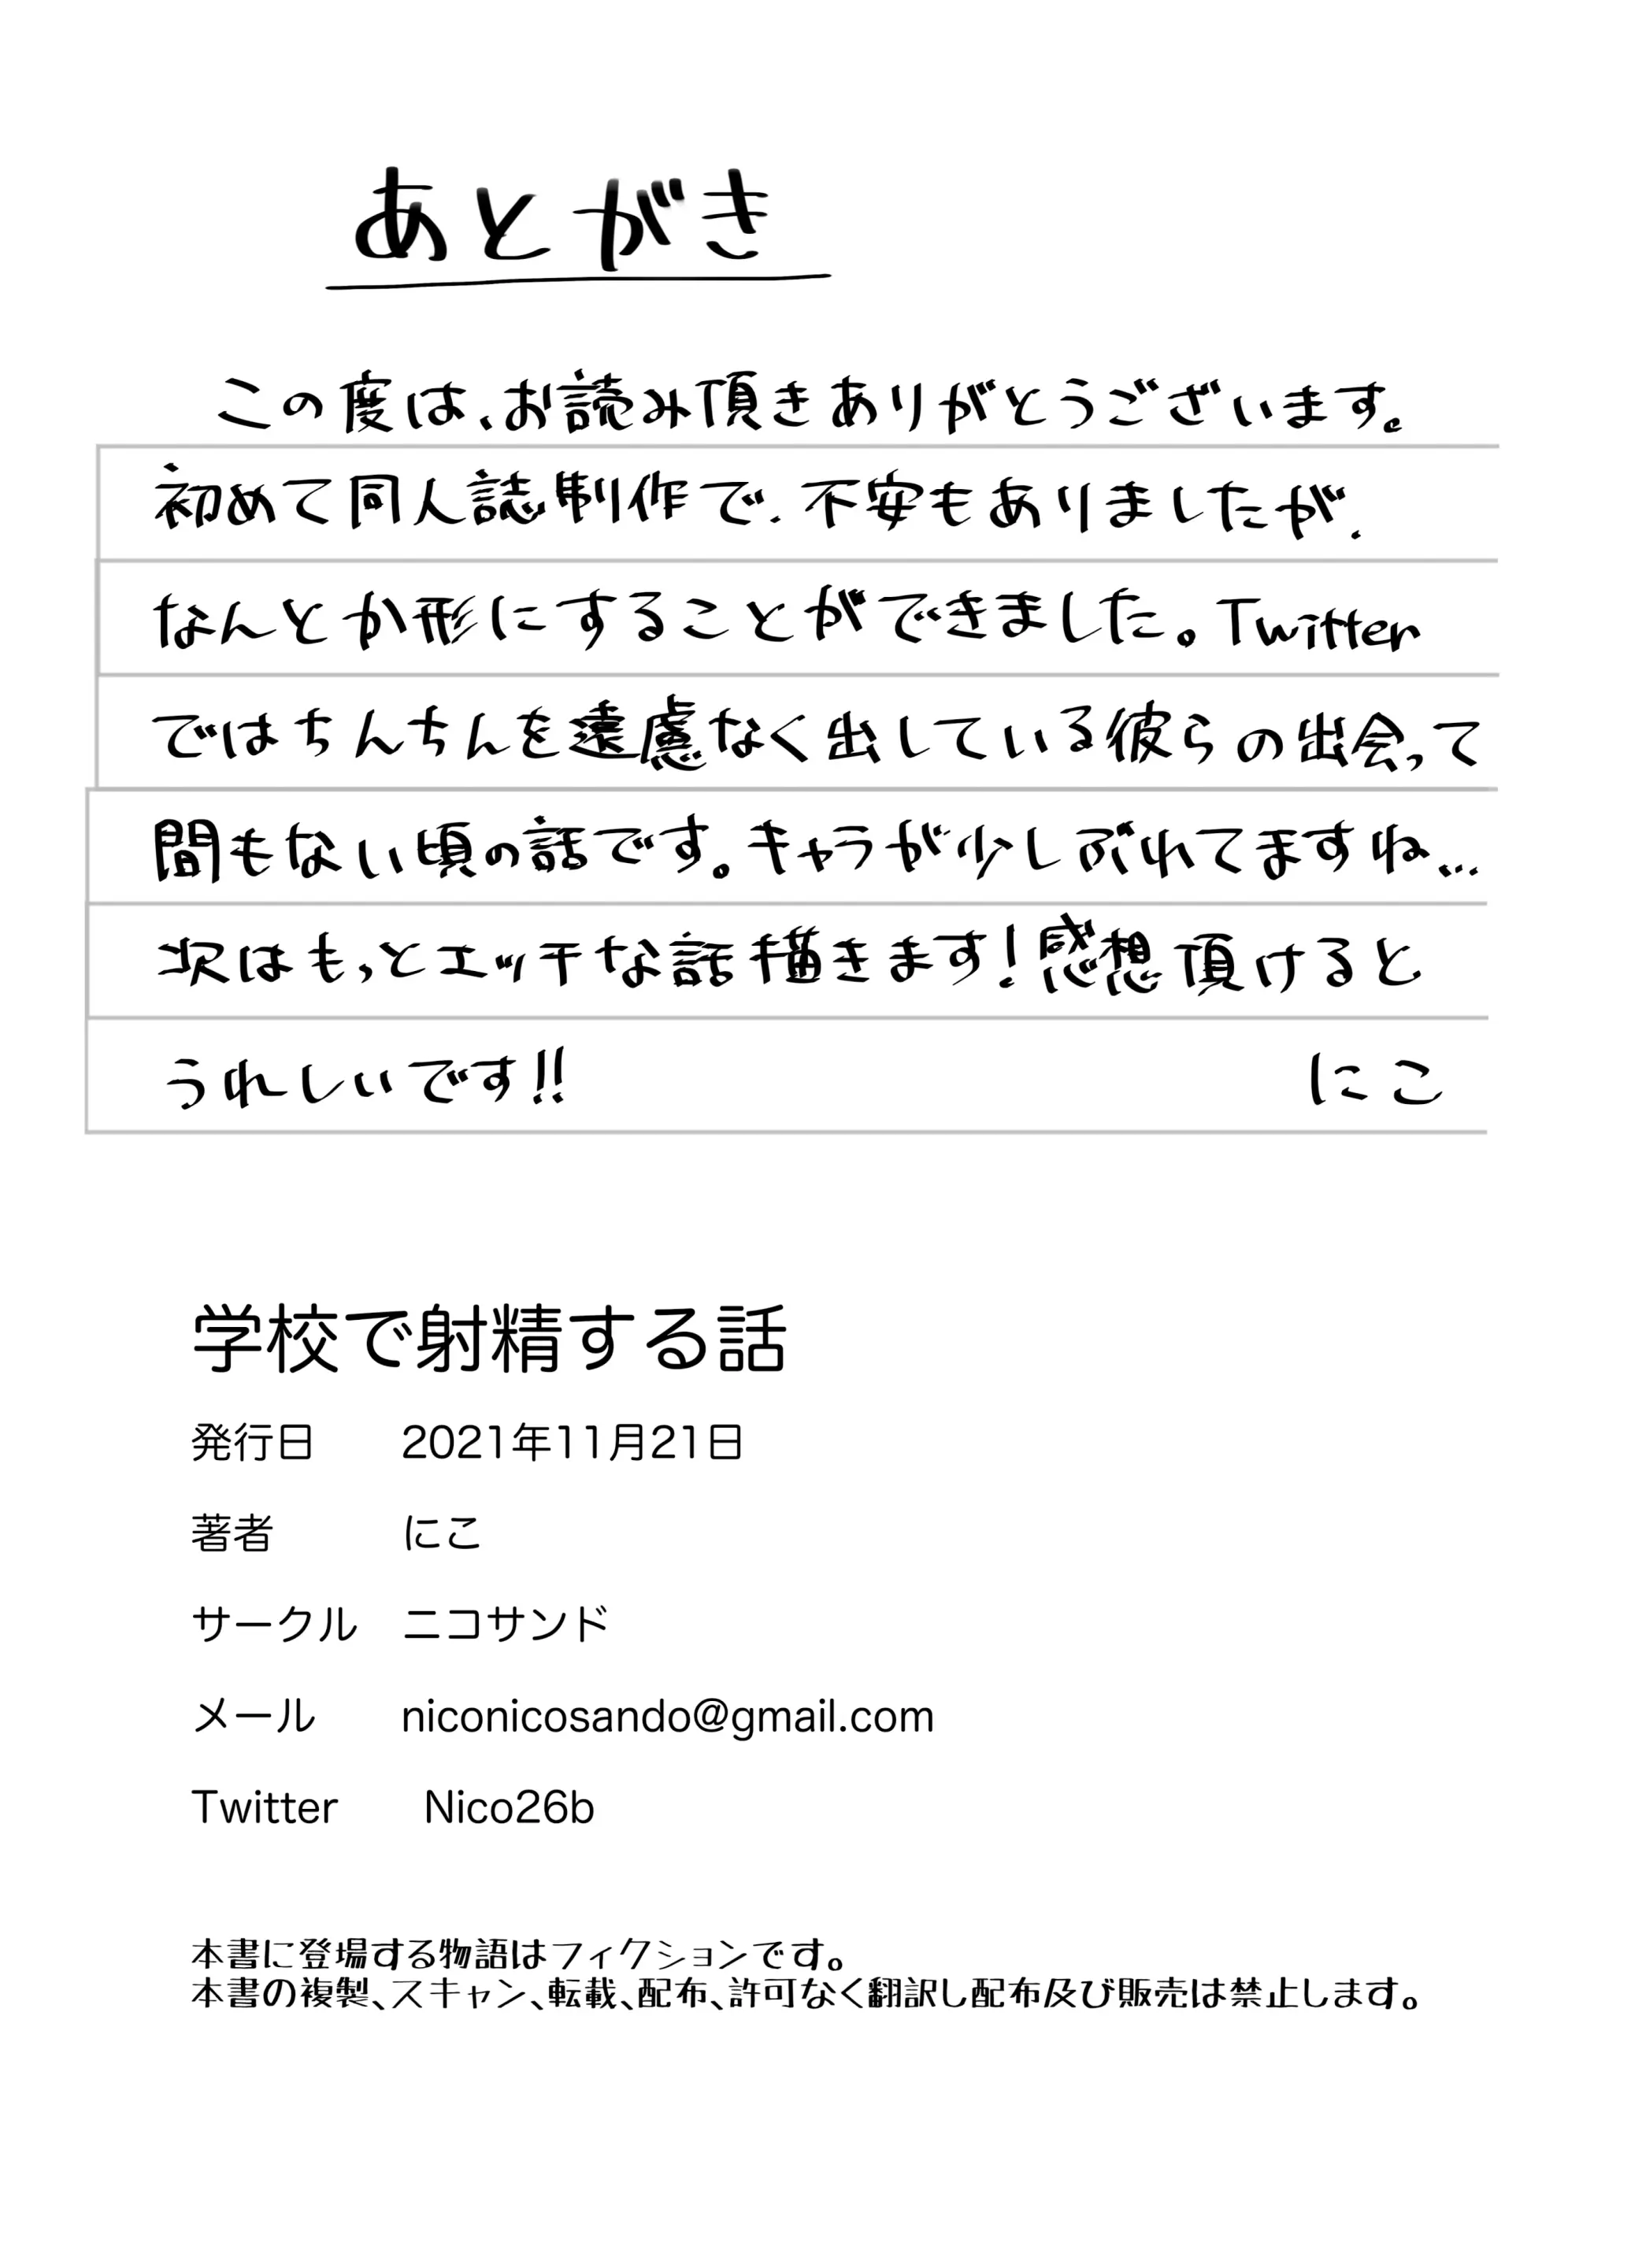 あとがき
この度は、お読み頂きありがとうございます。
初めて同人誌制作で、不安もありましたが、
なんとか形にすることができました。Twitter
ではちんちんを遠慮なく出している彼らの出会って
間もない頃の話です。キャラが少しぶれてますね…
次はもっとエッチな話描きます！感想頂けると
うれしいです!! にこ
学校で射精する話
発行日 2021年11月21日
著者 にこ
サークル ニコサンド
メール niconicosando@gmail.com
Twitter Nico26b
本書に登場する物語はフィクションです。
本書の複製、スキャン、転載、配布、許可なく翻訳し配布及び販売は禁止します。